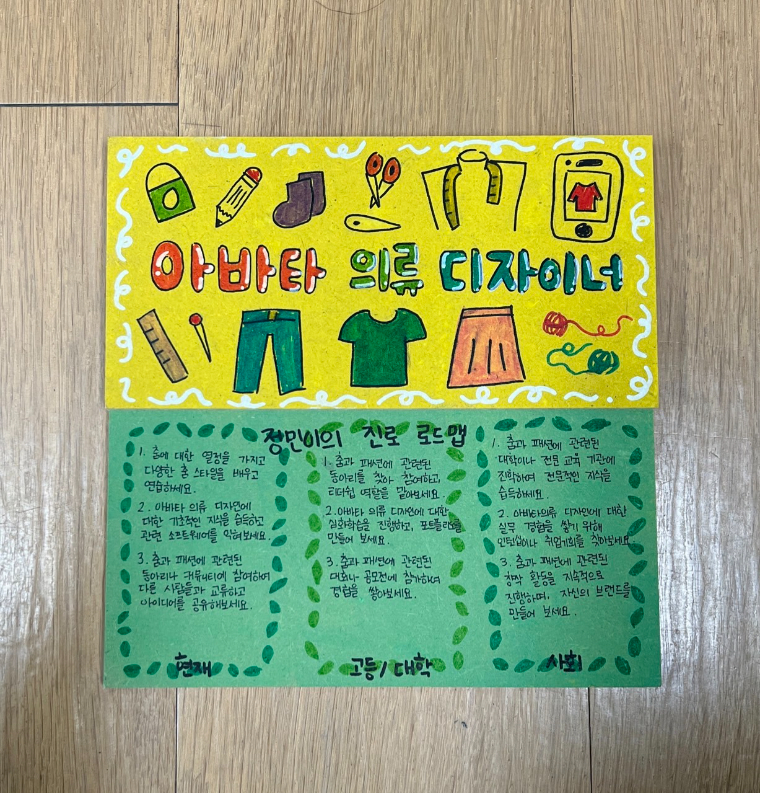 아바타 의류 디자이너
정민이의 진로 로드맵
1. 춤에 대한 열정을 가지고
다양한 춤 스타일을 배우고
연습하세요.
2. 아바타 의류 디자인에
대한 기초적인 지식을 습득하고
관련 소프트웨어를 익혀보세요.
3. 춤과 패션에 관련된
동아리나 커뮤니티에 참여하여
다른 사람들과 교류하고
아이디어를 공유해보세요.
현재
1. 춤과 패션에 관련된
동아리를 찾아 참여하고,
리더쉽 역할을 맡아보세요.
2. 아바타 의류 디자인에 대한
심화학습을 진행하고, 포트폴리오를
만들어 보세요.
3. 춤과 패션에 관련된
대회나 공모전에 참가하여
경험을 쌓아보세요.
고등/대학
1. 춤과 패션에 관련된
대학이나 전문 교육 기관에
진학하여 전문적인 지식을
습득하세요.
2. 아바타 의류 디자인에 대한
실무 경험을 쌓기 위해
인턴십이나 취업기회를 찾아보세요.
3. 춤과 패션에 관련된
창작 활동을 지속적으로
진행하며, 자신의 브랜드를
만들어 보세요.
사회